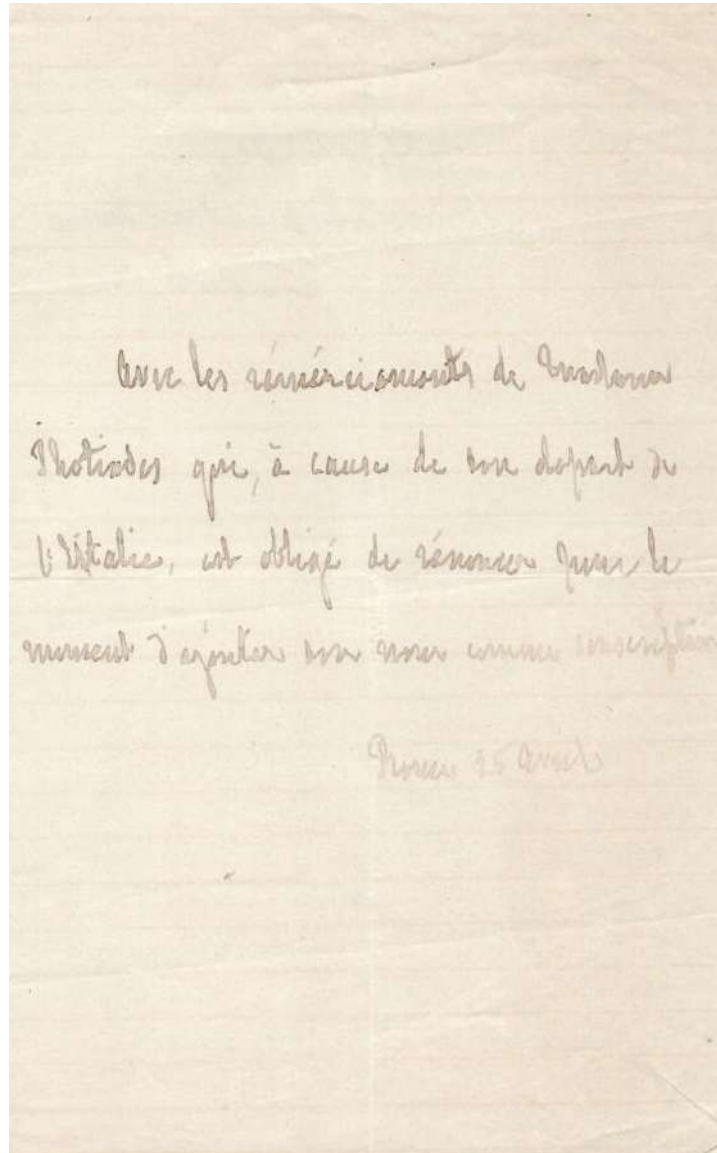 Avec les rémérciements de Madame
Photiades qui, à cause de son depart de
l'Italie, est obligé de rénoncer pour le
moment d'ajouter son nom comme souscription
Rome 25 Avril